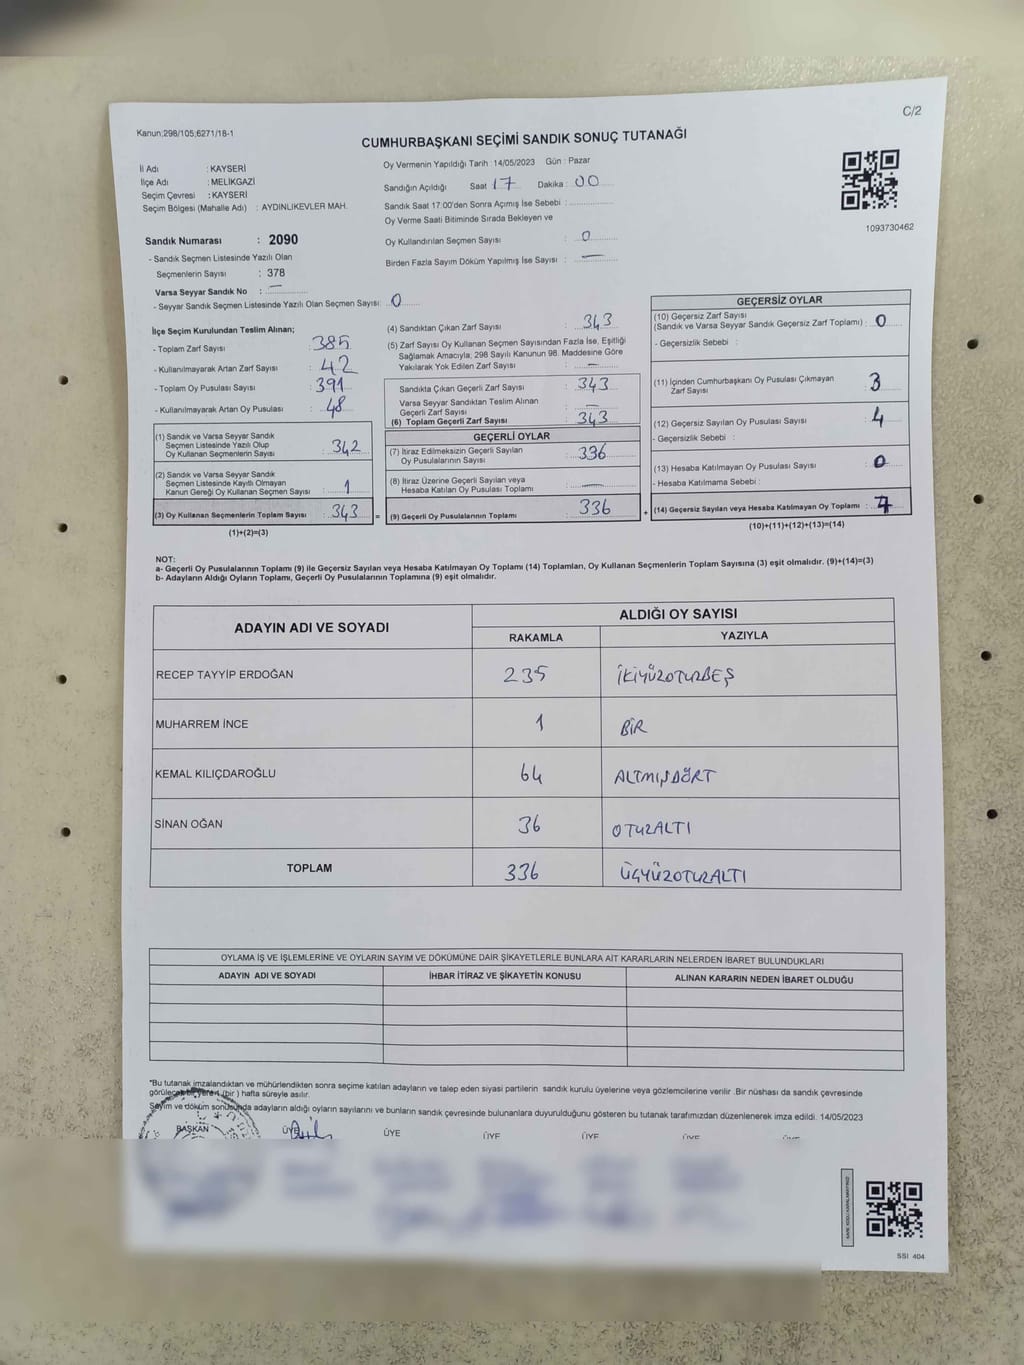 C/2
Kanun;298/105;6271/18-1
CUMHURBAŞKANI SEÇİMİ SANDIK SONUÇ TUTANAĞI
İl Adı : KAYSERİ
İlçe Adı : MELİKGAZİ
Seçim Çevresi : KAYSERİ
Seçim Bölgesi (Mahalle Adı) : AYDINLIKEVLER MAH.
Oy Vermenin Yapıldığı Tarih : 14/05/2023 Gün : Pazar
Sandığın Açıldığı Saat : 17 Dakika : 00
Sandık Saat 17:00'den Sonra Açımış İse Sebebi :
Oy Verme Saati Bitiminde Sırada Bekleyen ve
Oy Kullandırılan Seçmen Sayısı : 0
Birden Fazla Sayım Döküm Yapılmış İse Sayısı : —
1093730462
Sandık Numarası : 2090
- Sandık Seçmen Listesinde Yazılı Olan
Seçmenlerin Sayısı : 378
Varsa Seyyar Sandık No : —
- Seyyar Sandık Seçmen Listesinde Yazılı Olan Seçmen Sayısı: 0
İlçe Seçim Kurulundan Teslim Alınan;
- Toplam Zarf Sayısı : 385
- Kullanılmayarak Artan Zarf Sayısı : 42
- Toplam Oy Pusulası Sayısı : 391
- Kullanılmayarak Artan Oy Pusulası : 48
(1) Sandık ve Varsa Seyyar Sandık
Seçmen Listesinde Yazılı Olup
Oy Kullanan Seçmenlerin Sayısı : 342
(2) Sandık ve Varsa Seyyar Sandık
Seçmen Listesinde Kayıtlı Olmayan
Kanun Gereği Oy Kullanan Seçmen Sayısı : 1
(3) Oy Kullanan Seçmenlerin Toplam Sayısı : 343 =
(1)+(2)=(3)
(4) Sandıktan Çıkan Zarf Sayısı : 343
(5) Zarf Sayısı Oy Kullanan Seçmen Sayısından Fazla İse, Eşitliği
Sağlamak Amacıyla; 298 Sayılı Kanunun 98. Maddesine Göre
Yakılarak Yok Edilen Zarf Sayısı : —
Sandıkta Çıkan Geçerli Zarf Sayısı : 343
Varsa Seyyar Sandıktan Teslim Alınan
Geçerli Zarf Sayısı : —
(6) Toplam Geçerli Zarf Sayısı : 343
GEÇERLİ OYLAR
(7) İtiraz Edilmeksizin Geçerli Sayılan
Oy Pusulalarının Sayısı : 336
(8) İtiraz Üzerine Geçerli Sayılan veya
Hesaba Katılan Oy Pusulası Toplamı : —
(9) Geçerli Oy Pusulalarının Toplamı : 336 +
GEÇERSİZ OYLAR
(10) Geçersiz Zarf Sayısı
(Sandık ve Varsa Seyyar Sandık Geçersiz Zarf Toplamı) : 0
- Geçersizlik Sebebi :
(11) İçinden Cumhurbaşkanı Oy Pusulası Çıkmayan
Zarf Sayısı 3
(12) Geçersiz Sayılan Oy Pusulası Sayısı : 4
- Geçersizlik Sebebi :
(13) Hesaba Katılmayan Oy Pusulası Sayısı : 0
- Hesaba Katılmama Sebebi :
(14) Geçersiz Sayılan veya Hesaba Katılmayan Oy Toplamı : 7
(10)+(11)+(12)+(13)=(14)
NOT:
a- Geçerli Oy Pusulasının Toplamı (9) ile Geçersiz Sayılan veya Hesaba Katılmayan Oy Toplamı (14) Toplamları, Oy Kullanan Seçmenlerin Toplam Sayısına (3) eşit olmalıdır. (9)+(14)=(3)
b- Adayların Aldığı Oyların Toplamı, Geçerli Oy Pusulalarının Toplamına (9) eşit olmalıdır.
ADAYIN ADI VE SOYADI
ALDIĞI OY SAYISI
RAKAMLA YAZIYLA
RECEP TAYYİP ERDOĞAN 235 İKİYÜZOTUZBEŞ
MUHARREM İNCE 1 BİR
KEMAL KILIÇDAROĞLU 64 ALTMIŞDÖRT
SİNAN OĞAN 36 OTUZALTI
TOPLAM 336 ÜÇYÜZOTUZALTI
OYLAMA İŞ VE İŞLEMLERİNE VE OYLARIN SAYIM VE DÖKÜMÜNE DAİR ŞİKAYETLERLE BUNLARA AİT KARARLARIN NELERDEN İBARET BULUNDUKLARI
ADAYIN ADI VE SOYADI İHBAR İTİRAZ VE ŞİKAYETİN KONUSU ALINAN KARARIN NEDEN İBARET OLDUĞU
*Bu tutanak imzalandıktan ve mühürlendikten sonra seçime katılan adayların ve talep eden siyasi partilerin sandık kurulu üyelerine veya gözlemcilerine verilir .Bir nüshası da sandık çevresinde
görülecek bir yere 1 (bir ) hafta süreyle asılır.
Sayım ve döküm sonucunda adayların aldığı oyların sayılarını ve bunların sandık çevresinde bulunanlara duyurulduğunu gösteren bu tutanak tarafımızdan düzenlenerek imza edildi. 14/05/2023
BAŞKAN ÜYE ÜYE ÜYE ÜYE ÜYE
SSI 404